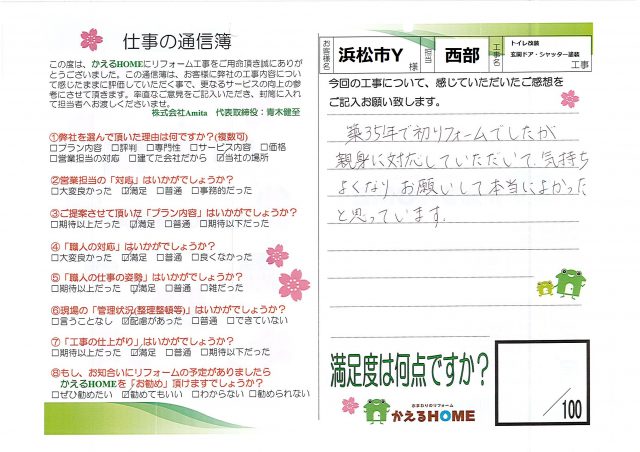 仕事の通信簿
この度は、かえるHOMEにリフォーム工事をご用命頂き誠にありが
とうございました。この通信簿は、お客様に弊社の工事内容につい
て感じたままに評価していただく事で、更なるサービスの向上の参
考にさせて頂きます。率直なご意見をご記入いただき、封筒に入れ
て担当者へお渡しくださいませ。
株式会社Amita 代表取締役：青木健至
①弊社を選んで頂いた理由は何ですか?(複数可)
□プラン内容 □評判 □専門性 □サービス内容 □価格
□営業担当の対応 □建てた会社だから ☑当社の場所
②営業担当の「対応」はいかがでしょうか?
□大変良かった ☑満足 □普通 □事務的だった
③ご提案させて頂いた「プラン内容」はいかがでしょうか?
□期待以上だった ☑満足 □普通 □期待以下だった
④「職人の対応」はいかがでしょうか?
□大変良かった ☑満足 □普通 □良くなかった
⑤「職人の仕事の姿勢」はいかがでしょうか?
□期待以上だった ☑満足 □普通 □雑だった
⑥現場の「管理状況(整理整頓等)」はいかがでしょうか?
□言うことなし ☑配慮があった □普通 □できていない
⑦「工事の仕上がり」はいかがでしょうか?
□期待以上だった ☑満足 □普通 □期待以下だった
⑧もし、お知合いにリフォームの予定がありましたら
かえるHOMEを「お勧め」頂けますでしょうか?
□ぜひ勧めたい ☑勧めてもいい □わからない □勧められない
お客様名 浜松市Y 様 担当 西部 工事名 トイレ改装
玄関ドア・シャッター塗装 工事
今回の工事について、感じていただいたご感想を
ご記入お願い致します。
築35年で初リフォームでしたが
親身に対応していただいて、気持ち
よくなり お願いして本当によかった
と思っています。
満足度は何点ですか?
/100
水まわりのリフォーム
かえるHOME